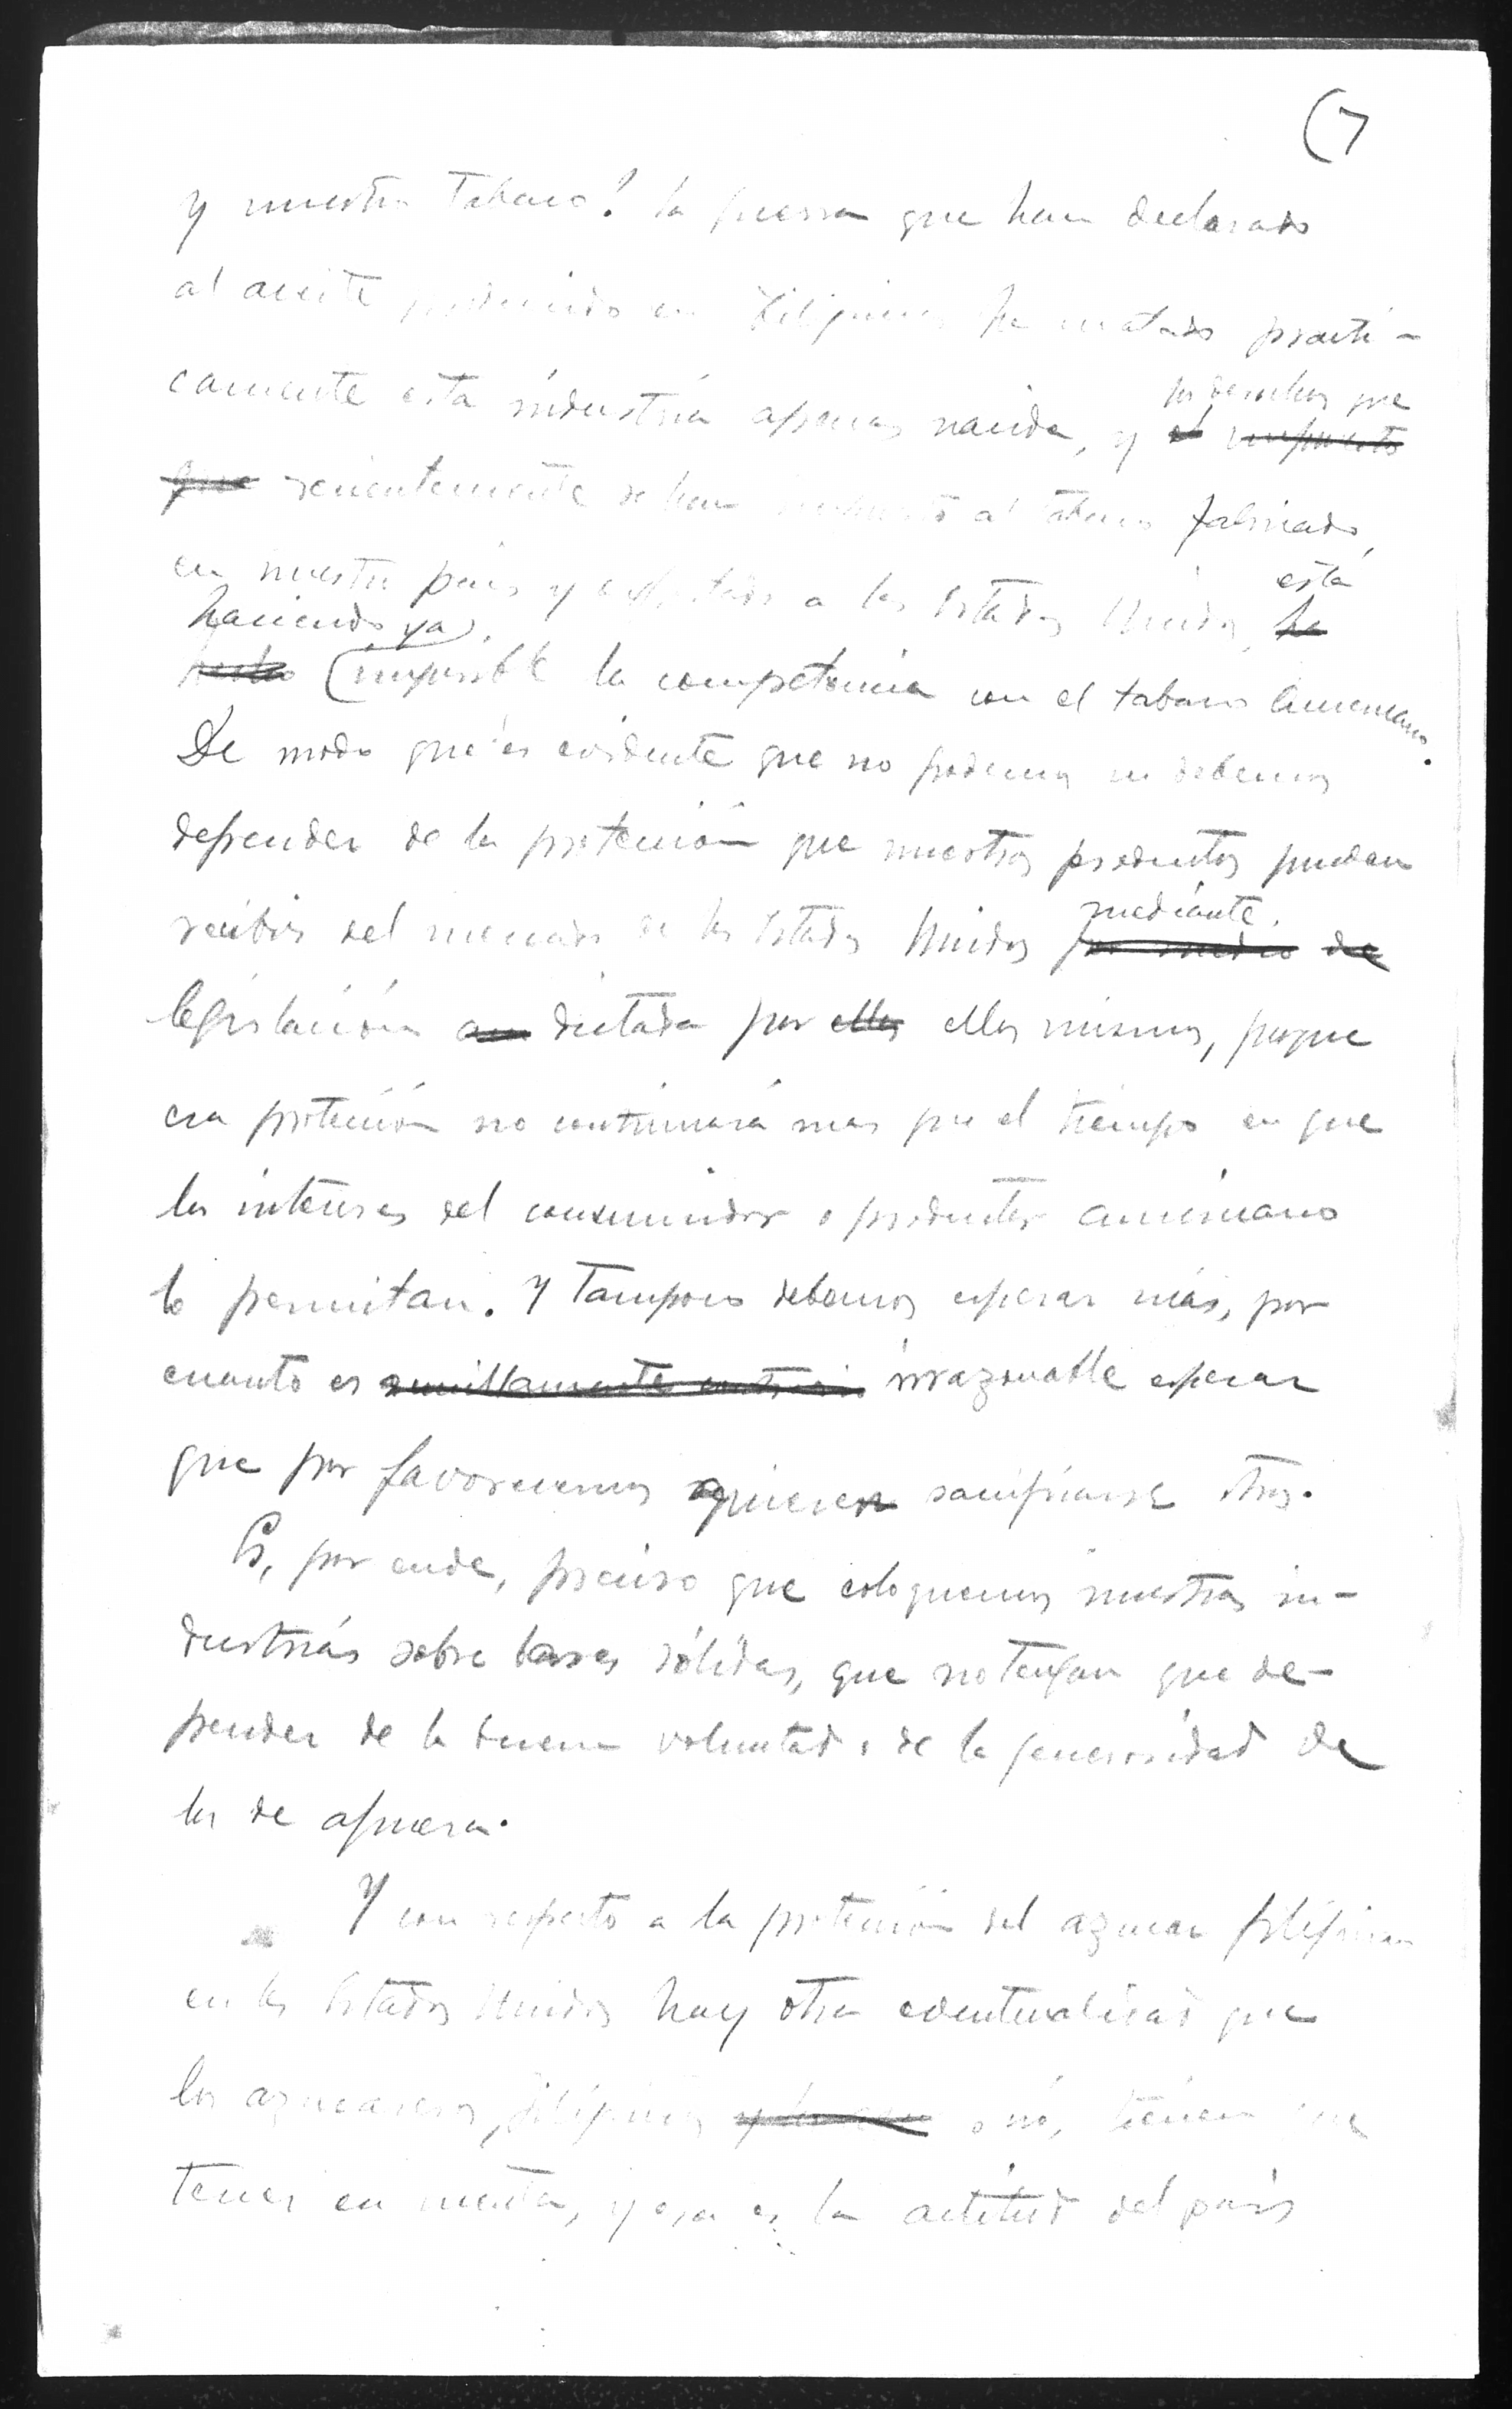 (7
y nuestro tabaco? La guerra que han declarado
al aceite producido en Filipinas ha matado practi-
camente esta industria apenas nacida, y los derechos que
~~el impuesto~~
~~que~~ recientemente se han impuesto al tabaco fabricado
en nuestro pais y exportado a los Estados Unidos, está
~~ha~~
haciendo ya
~~hecho~~ (imposible la competencia con el tabaco americano.
De modo que es evidente que no podemos ni debemos
depender de la protección que nuestros productos puedan
recibir del mercado de los Estados Unidos mediante
~~por medio de~~
legislación dictada por ~~ellos~~ ellos mismos, porque
esa protección no continuará mas que el tiempo en que
los intereses del consumidor o productor americano
lo permitan. Y tampoco debemos esperar más, por
cuanto es ~~sencillamente~~ irrazonable esperar
que por favorecernos quieran sacrificarse otros.
Es, por ende, preciso que coloquemos nuestras in-
dustrias sobre bases sólidas, que no tengan que de-
pender de la buena voluntad o de la generosidad de
los de afuera.
Y con respecto a la protección del azucar filipino
en los Estados Unidos hay otra eventualidad que
los azucareros, filipinos o no, tienen que
tener en cuenta, y esa es la actitud del pais